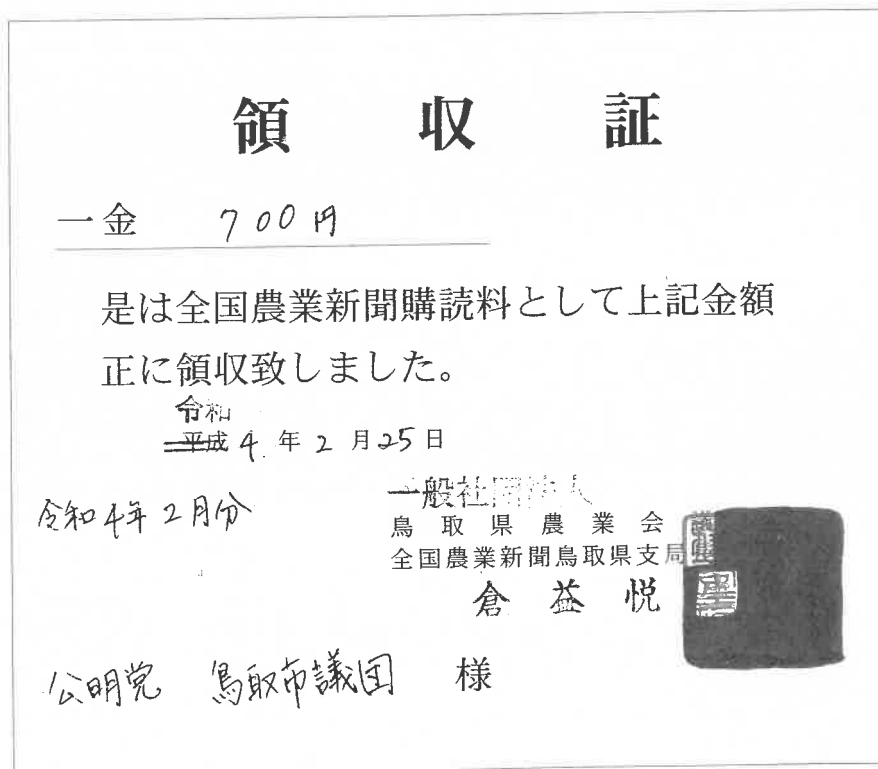 領収証
一金 700円
是は全国農業新聞購読料として上記金額
正に領収致しました。
令和
平成 4. 年 2 月 25 日
令和4年2月分
一般社団法人
鳥取県農業会議
全国農業新聞鳥取県支局
倉益悦
公明党 鳥取市議団 様